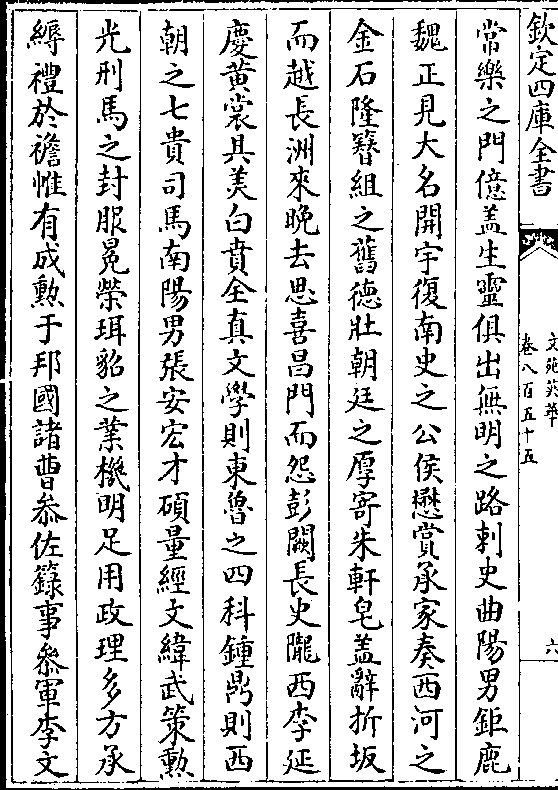 欽定四庫全書
文苑英華
卷八百五十五
六
常樂之門億盖生靈俱出無明之路刺史曲陽男鉅鹿
魏正見大名開宇復南史之公侯懋賞承家奏西河之
金石隆簪組之舊德壯朝廷之厚寄朱軒皂盖辭折坂
而越長洲來晚去思喜昌門而怨彭闕長史隴西李延
慶黄裳具美白賁全真文學則東魯之四科鍾鼎則西
朝之七貴司馬南陽男張安宏才碩量經文緯武策勲
光刑馬之封服冕榮珥貂之業機明足用政理多方承
縟禮於襜惟有成勲于邦國諸曹叅佐錄事叅軍李文